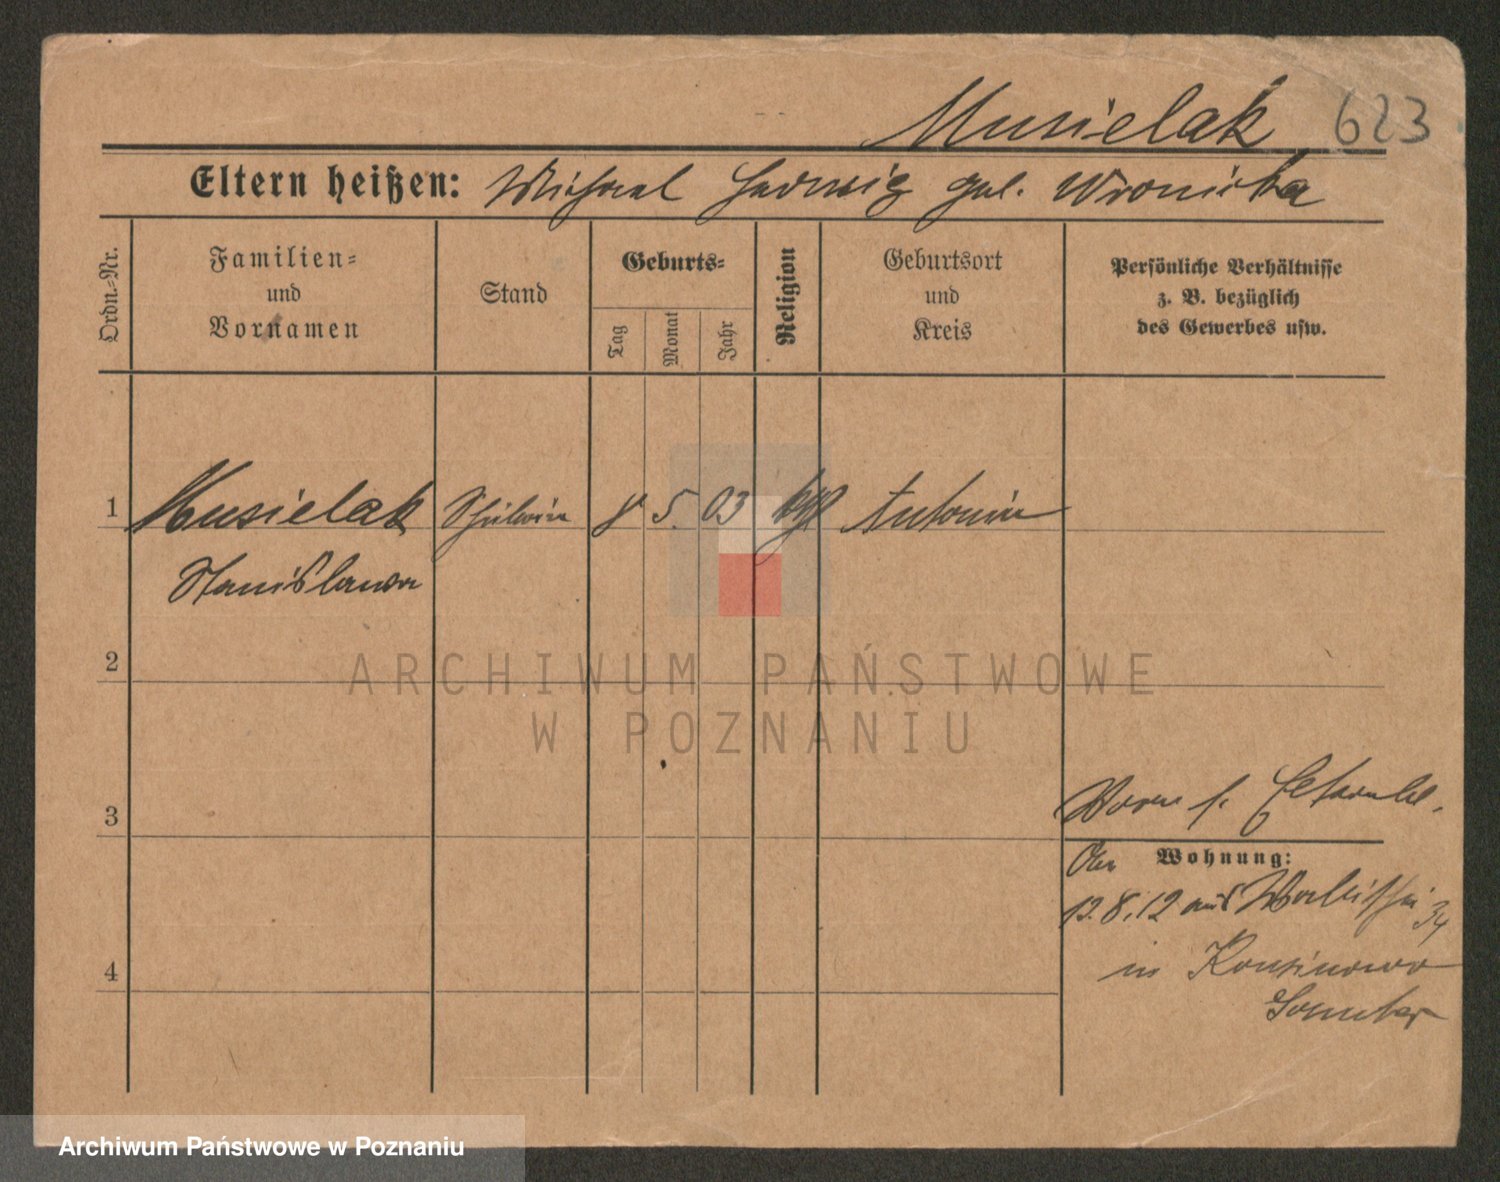 Musielak 623
Eltern heißen: Michael Hedwig geb. Wronicka
Ordn.-Nr.
Familien-
und
Vornamen
Stand
Geburts-
Tag
Monat
Jahr
Religion
Geburtsort
und
Kreis
Persönliche Verhältnisse
z. B. bezüglich
des Gewerbes usw.
1 Musielak Schülerin 8 5. 03 kath Antonin
Stanislawa
2
ARCHIWUM PAŃSTWOWE
W POZNANIU
3
Wohnung:
12.8.12 aus 34
in
4
Samter
Archiwum Państwowe w Poznaniu